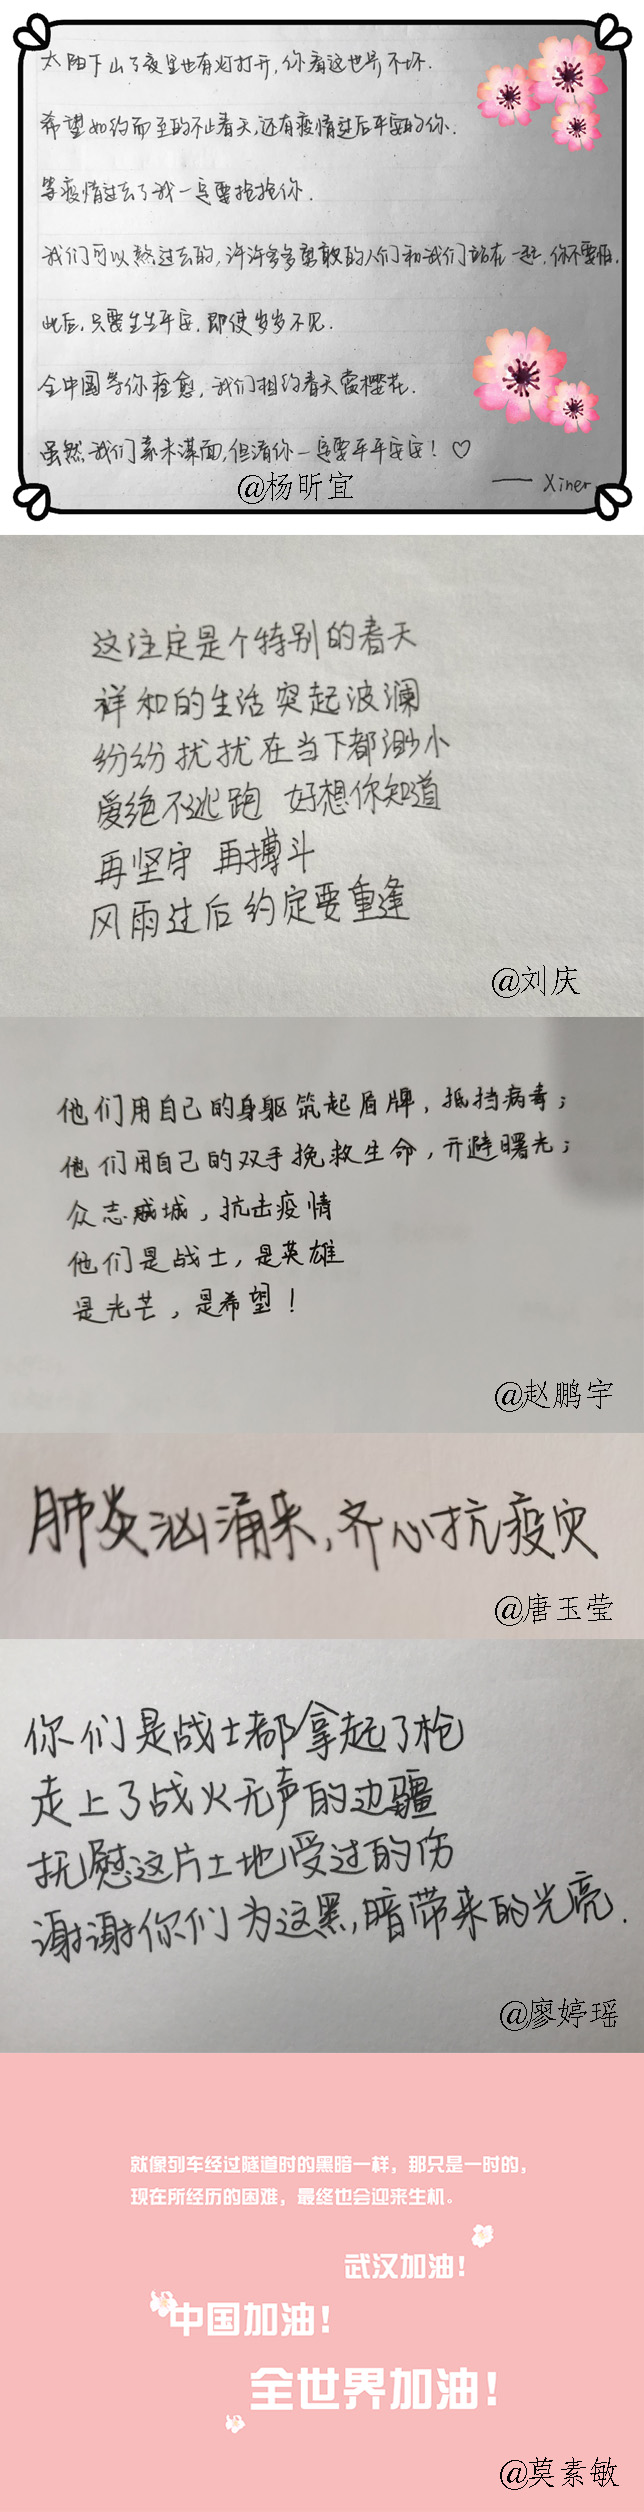 太阳下山了夜里也有灯打开,你看这世界不坏.
希望如约而至的不止春天,还有疫情过后平安的你.
等疫情过去了我一定要抱抱你.
我们可以熬过去的,许许多多勇敢的人们和我们站在一起,你不要怕.
此后,只要生生平安,即使岁岁不见.
全中国等你痊愈,我们相约春天赏樱花.
虽然我们素未谋面,但请你一定要平平安安!♡
@杨昕宜
—— Xiner
这注定是个特别的春天
祥和的生活突起波澜
纷纷扰扰在当下都渺小
爱绝不逃跑 好想你知道
再坚守 再搏斗
风雨过后约定要重逢
@刘庆
他们用自己的身躯筑起盾牌，抵挡病毒；
他们用自己的双手挽救生命，开避曙光；
众志成城，抗击疫情
他们是战士，是英雄
是光芒，是希望！
@赵鹏宇
肺炎汹涌来,齐心抗疫灾
@唐玉莹
你们是战士都拿起了枪
走上了战火无声的边疆
抚慰这片土地受过的伤
谢谢你们为这黑暗带来的光亮.
@廖婷瑶
就像列车经过隧道时的黑暗一样，那只是一时的，
现在所经历的困难，最终也会迎来生机。
武汉加油！
中国加油！
全世界加油！
@莫素敏